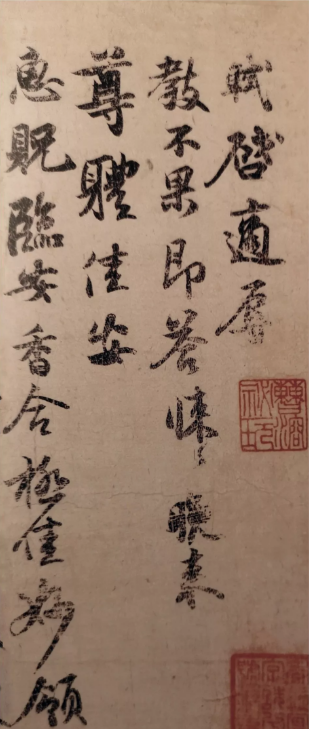 軾啓適辱
教不果即荅悚悚晚来
尊體佳安
惠貺臨安香合極佳妙領